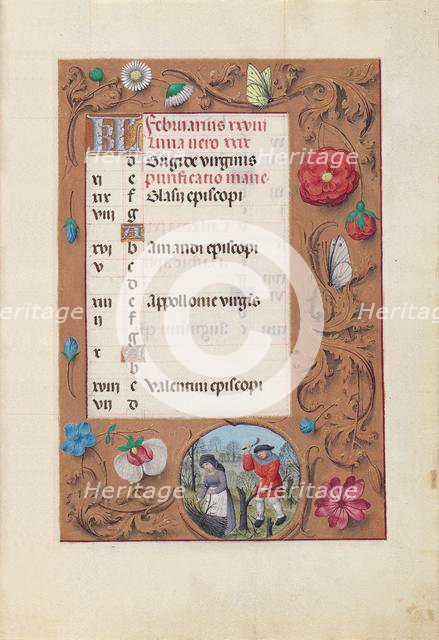 KL Februarius xxviii
Luna vero xxix
d Brigide virginis
xi e Purificatio marie
xix f Blasii episcopi
viii g
A
xvi b Amandi episcopi
v c
d
xiii e Appollonie virgis
ii f
g
x A
b
xviii c Valentini episcopi
vii d
Heritage Heritage Heritage
Heritage Heritage Heritage